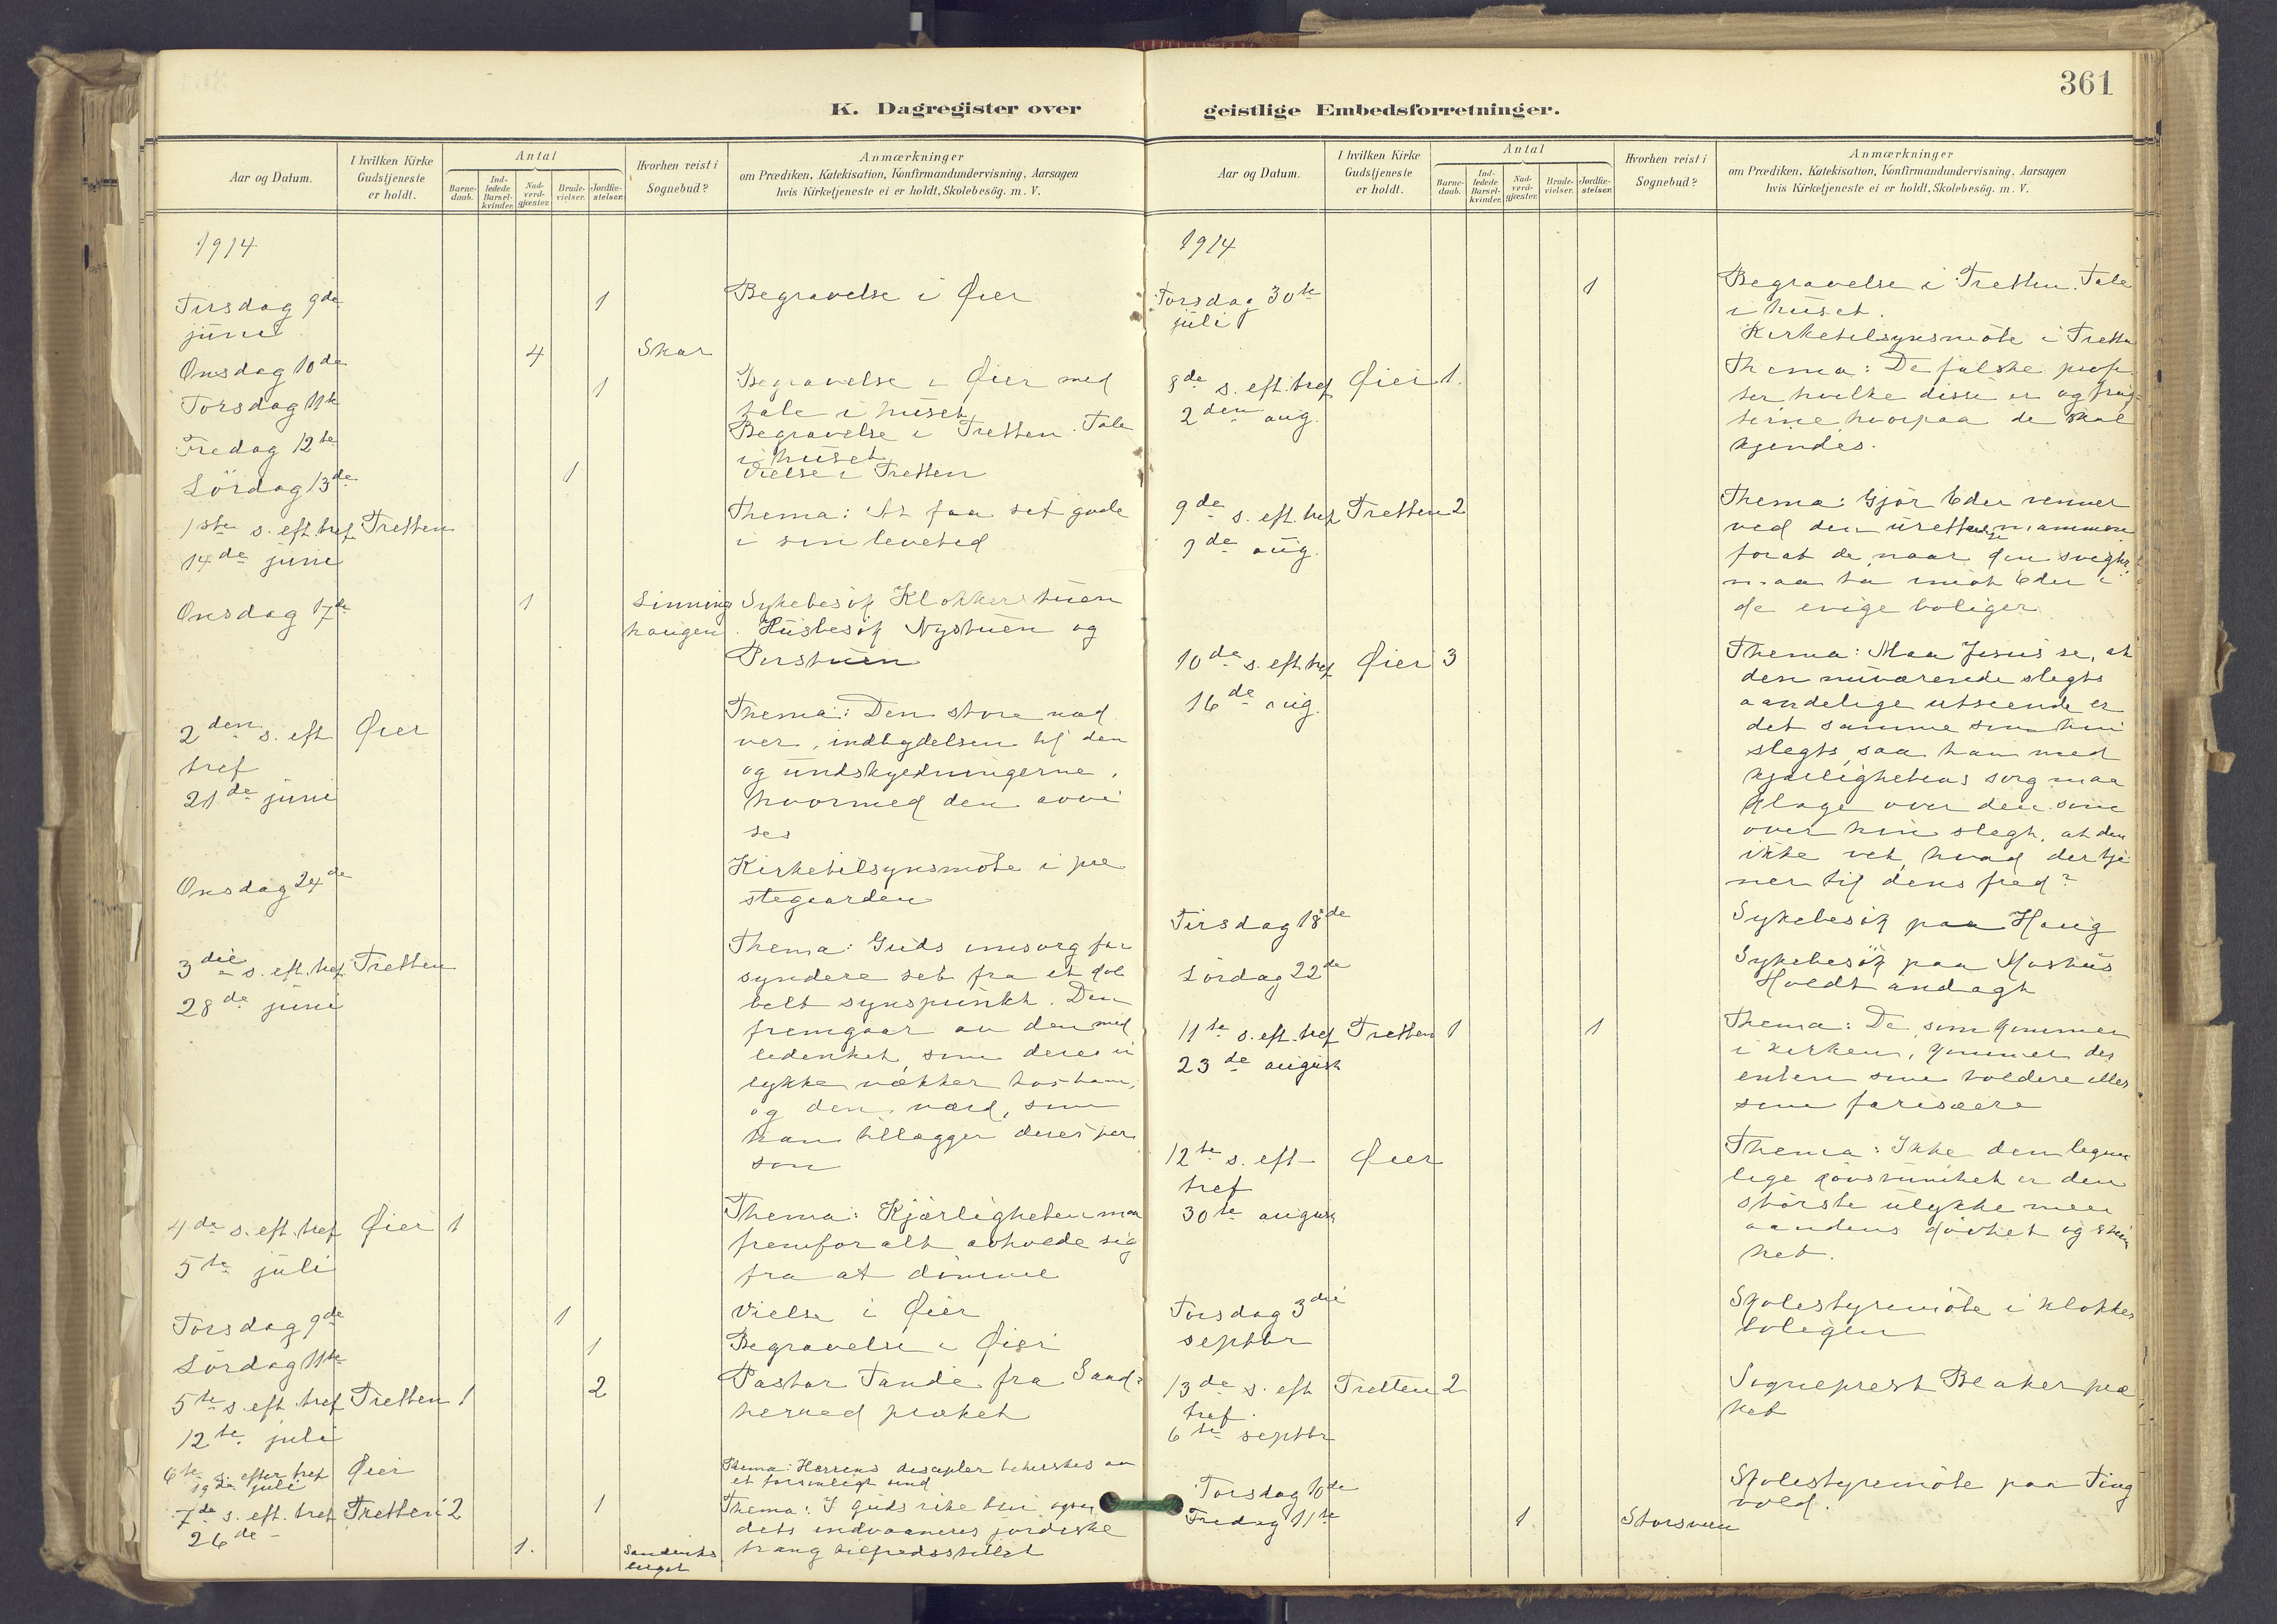 K. Dagregister over
Aar og Datum.
I hvilken Kirke
Gudstjeneste
er holdt.
Antal
Barne-
daab.
Ind-
ledede
Barsel-
kvinder.
Nad-
verd-
gjæster.
Brude-
vielser.
Jordfæ-
stelser.
Hvorhen reist i
Sognebud?
Anmærkninger
om Prædiken, Katekisation, Konfirmandundervisning, Aarsagen
hvis Kirketjeneste ei er holdt, Skolebesög. m. V.
1914
Tirsdag 9de 1 Begravelse i Øier
juni
Onsdag 10de 4 Skar
Torsdag 11te 1 Begravelse i Øier med
tale i huset
Fredag 12te Begravelse i Tretten. Tale
i huset
Lördag 13de 1 Vielse i Tretten
1ste s. eft. tref Tretten Thema: At faa sit gode
14de juni i sin levetid
Onsdag 17de 1 Linning Sykebesök Klokkerstuen
haugen. Husbesök Nystuen og
Perstuen
2den s. eft Øier Thema: Den store nad
tref ver, indbydelsen til den
21de juni og undskyldningerne,
hvormed den avvi
ses
Onsdag 24de Kirketilsynsmöte i pre
stegaarden
3die s. eft. tref Tretten Thema: Guds omsorg for
28de juni syndere set fra et dob
belt synspunkt. Den
fremgaar av den med
lidenhet, som deres u
lykke vækker hos ham,
og den værd, som
han tillægger deres per
son
4de s. eft. tref Øier 1 Thema: Kjærligheten maa
5te juli fremfor alt avholde sig
fra at dömme
Torsdag 9de 1 Vielse i Øier
Lördag 11te 1 Begravelse i Øier
5te s. eft. tref Tretten 1 2 Pastor Tande fra Sand-
12te juli herred præket
6te s. efter tref Øier Thema: Herrens disipler beherskes av
19de juli et forsonligt sind
7de s. eft. tref Tretten 2 1 Thema: I Guds rike blir ogsaa
26de dets indvaaneres jordiske
1. trang tilfredsstillet
361
geistlige Embedsforretninger.
Aar og Datum.
I hvilken Kirke
Gudstjeneste
er holdt.
Antal
Barne-
daab.
Ind-
ledede
Barsel-
kvinder.
Nad-
verd-
gjæster.
Brude-
vielser.
Jordfæ-
stelser.
Hvorhen reist i
Sognebud?
Anmærkninger
om Prædiken, Katekisation, Konfirmandundervisning, Aarsagen
hvis Kirketjeneste ei er holdt, Skolebesög. m. V.
1914
Torsdag 30te 1 Begravelse i Tretten. Tale
juli i huset.
Kirketilsynsmöte i Tretten
8de s. eft. tref Øier 1. Thema: De falske profe
2den aug. ter, hvilke disse er og frug-
terne, hvorpaa de skal
kjendes.
9de s. eft. tref Tretten 2 Thema: Gjör Eder venner
9de aug. ved den urettfærdige mammon
forat de, naar den svigter,
maa ta imot Eder i
de evige boliger
10de s. eft. tref Øier 3 Thema: Maa Jesus se, at
16de aug. den nuværende slegts
aandelige utseende er
det samme som hin
slegts, saa han med
kjærlighetens sorg maa
klage over den som
over hin slegt, at den
ikke vet, hvad der tje
ner til dens fred?
Tirsdag 18de Sykebesök paa Haug
Lördag 22de Sykebesök paa Moshus
Holdt andagt
11te s. eft. tref Tretten 1 1 Thema: De, som kommer
23de august i kirken, kommer der
enten som toldere eller
som farisæere
12te s. eft Øier Thema: Ikke den legem
tref lige dövstumhet er den
30te august störste ulykke men
aandens dövhet og stum
het.
Torsdag 3die Skolestyremöte i klokker
septbr boligen
13de s. eft Tretten 2 Sogneprest Blaker præ
tref. ket
6te septbr
Torsdag 10de Skolestyremöte paa Ting
vold.
Fredag 11te 1 Storsveen